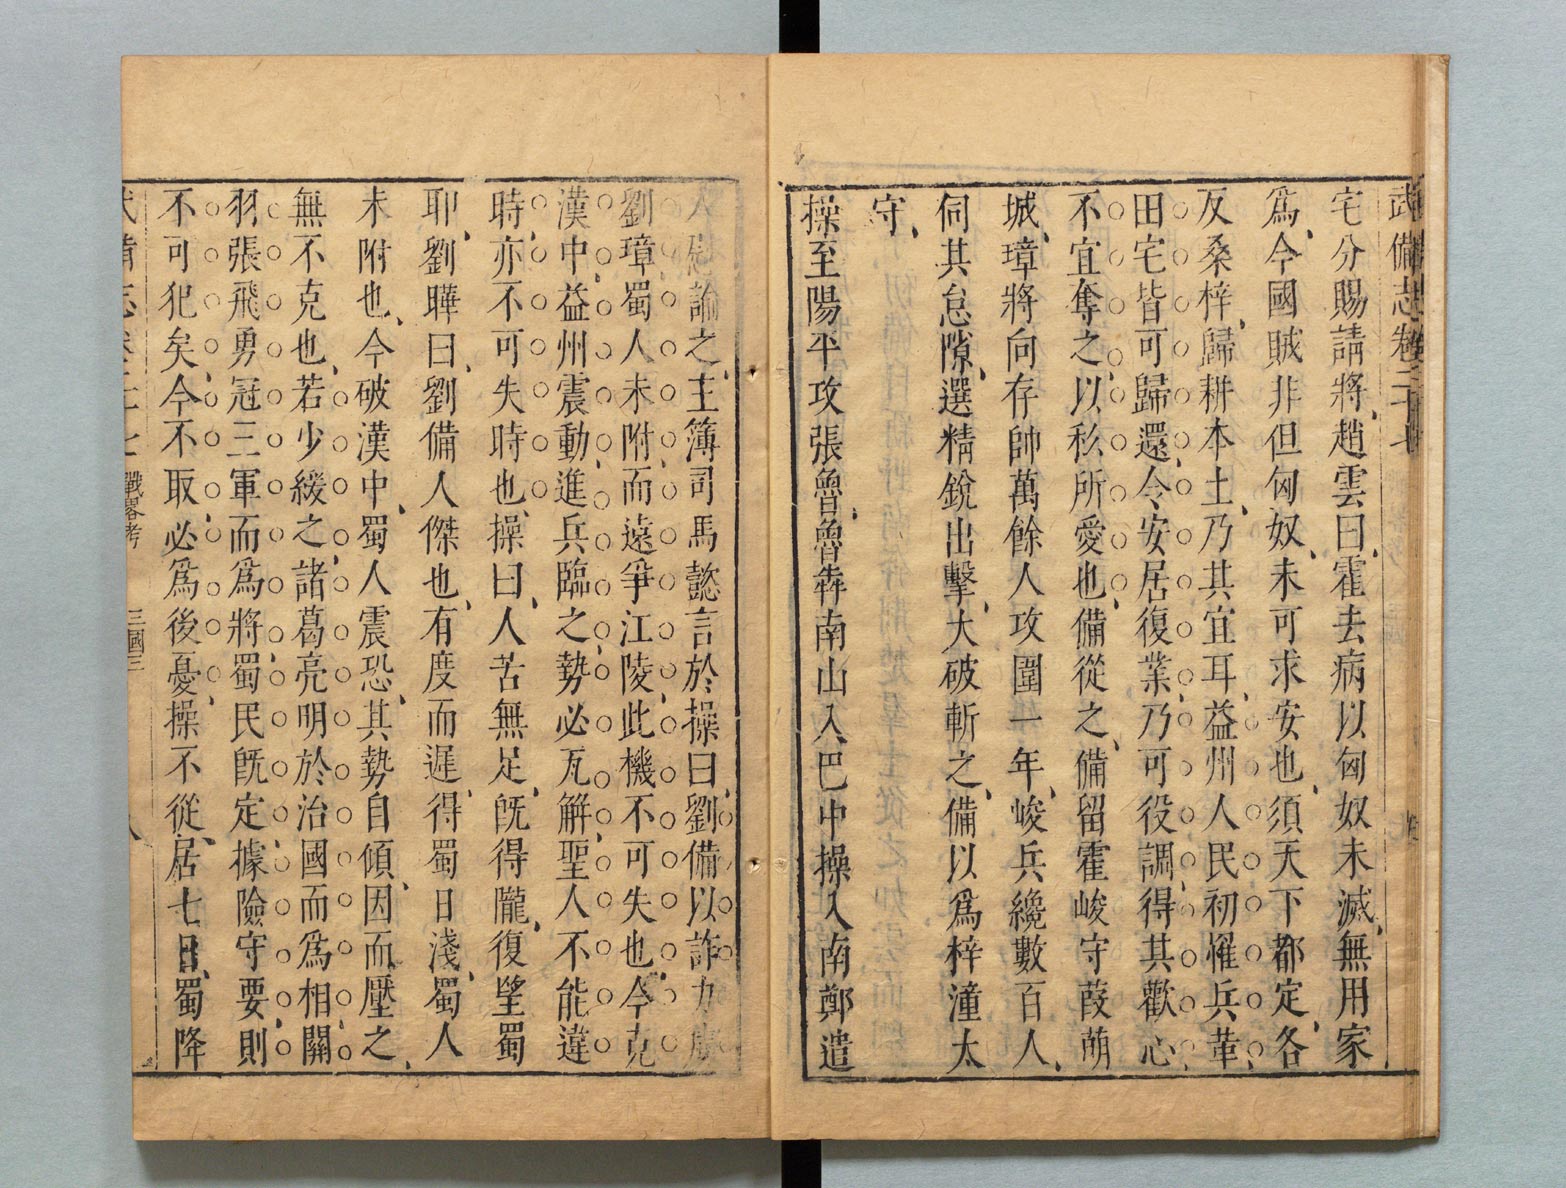 武備志卷二十七
宅分賜諸將、趙雲曰、霍去病以匈奴未滅、無用家
爲、今國賊非但匈奴、未可求安也、須天下都定、各
反桑梓、歸耕本土、乃其宜耳、益州人民初懼兵革、
田宅皆可歸還、令安居復業、乃可役調、得其歡心、
不宜奪之、以私所愛也、備從之、備留霍峻守葭萌
城、璋將向存帥萬餘人攻圍一年、峻兵纔數百人、
伺其怠隙、選精銳出擊、大破斬之、備以爲梓潼太
守、
操至陽平攻張魯、魯犇南山入巴中操入南鄭遣
人慰諭之、主簿司馬懿言於操曰、劉備以詐力虜
劉璋蜀人未附、而遠爭江陵、此機不可失也、今克
漢中、益州震動、進兵臨之、勢必瓦解、聖人不能違
時、亦不可失時也、操曰、人苦無足、旣得隴、復望蜀
耶、劉曄曰、劉備人傑也、有度而遲、得蜀日淺、蜀人
未附也、今破漢中、蜀人震恐、其勢自傾、因而壓之、
無不克也、若少緩之、諸葛亮明於治國而爲相、關
羽張飛勇冠三軍而爲將、蜀民旣定、據險守要、則
不可犯矣、今不取、必爲後憂、操不從、居七日、蜀降
武備志卷二十七 戰畧考 三國三 八